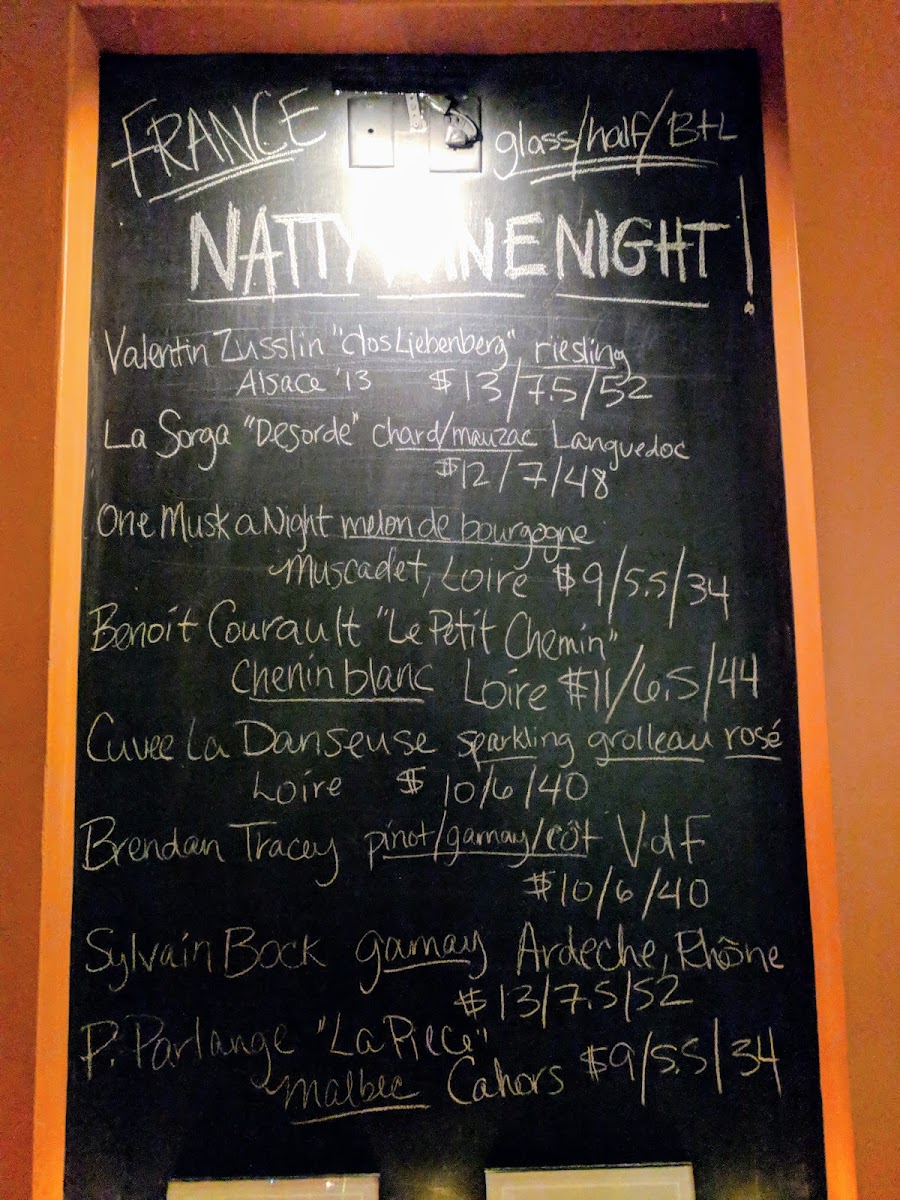 FRANCE glass/half/BTL
NATTY WINE NIGHT!
Valentin Zusslin "Clos Liebenberg" riesling
Alsace '13 $13/7.5/52
La Sorga "Desorde" chard/mauzac Languedoc
$12/7/48
One Musk a Night melon de bourgogne
Muscadet, Loire $9/5.5/34
Benoit Courault "Le Petit Chemin"
Chenin blanc Loire $11/6.5/44
Cuvee La Danseuse sparkling grolleau rosé
Loire $10/6/40
Brendan Tracey pinot/gamay/côt VdF
$10/6/40
Sylvain Bock gamay Ardeche, Rhône
$13/7.5/52
P. Parlange "La Piece"
malbec Cahors $9/5.5/34